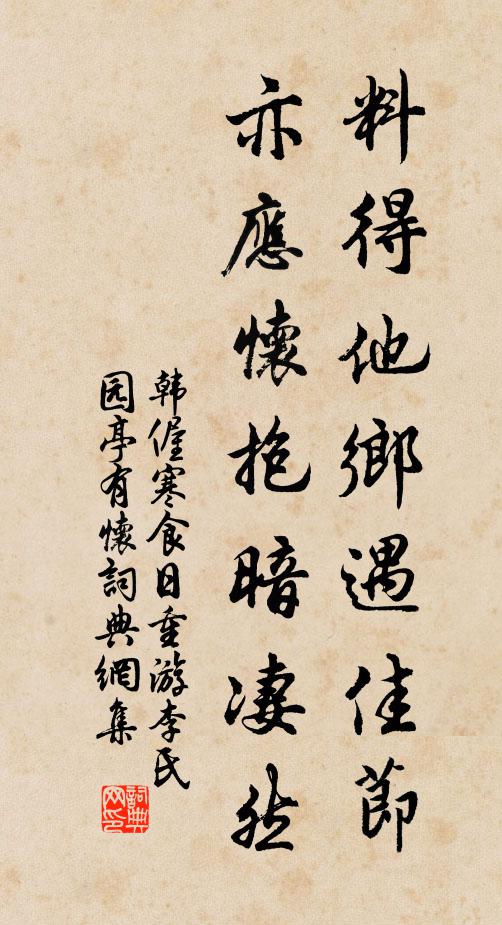 料得他鄉遇佳節
亦應懷抱暗凄然
韩偓寒食日重游李氏
园亭有懷詞典網集
詞典网印